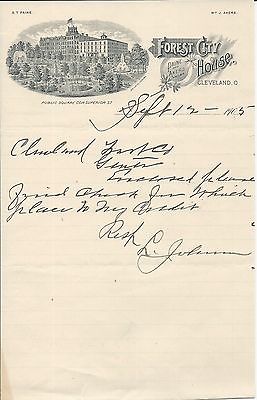 S. T. PAINE.
WM. J. AKERS.
FOREST CITY
HOUSE.
PAINE
CLEVELAND, O.
PUBLIC SQUARE COR. SUPERIOR ST.
Sept 12 - 1905
Cleveland Trust Co
Gents
Enclosed please
find Check for Which
place to My Credit
Resp
L. Johnson